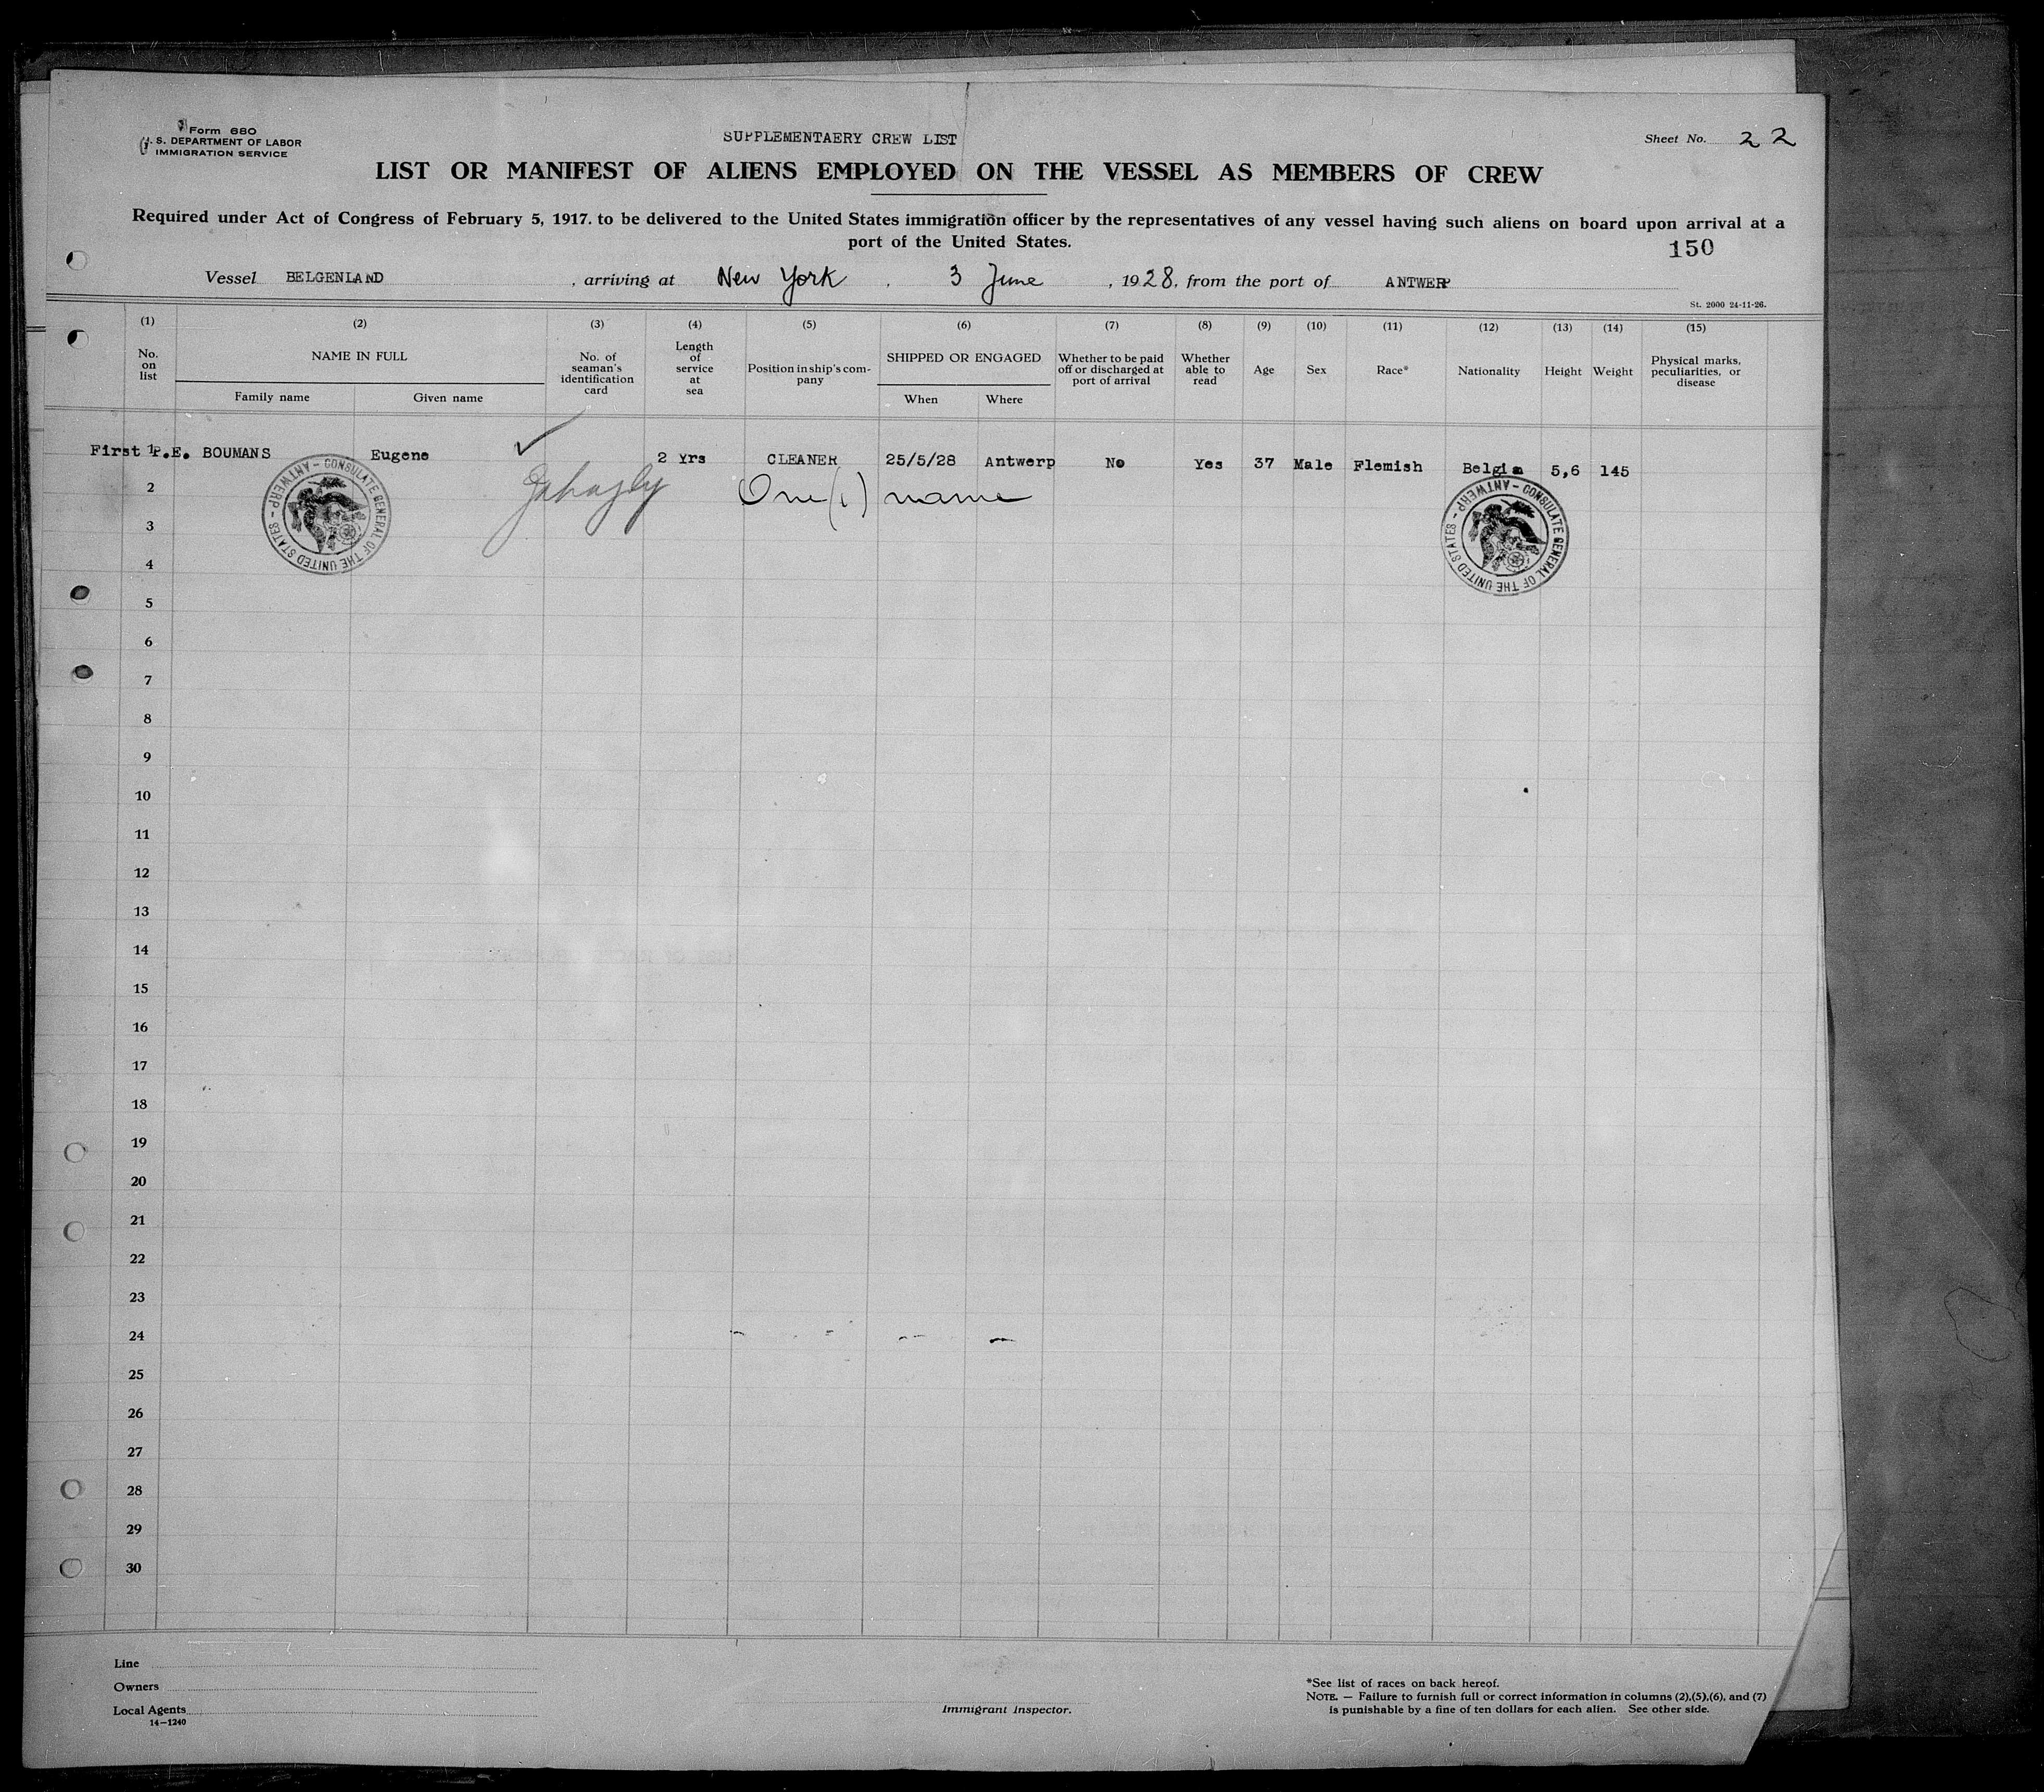 Form 680
U. S. DEPARTMENT OF LABOR
IMMIGRATION SERVICE
SUPPLEMENTAERY CREW LIST
Sheet No. 22
LIST OR MANIFEST OF ALIENS EMPLOYED ON THE VESSEL AS MEMBERS OF CREW
Required under Act of Congress of February 5, 1917. to be delivered to the United States immigration officer by the representatives of any vessel having such aliens on board upon arrival at a
port of the United States.
150
Vessel BELGENLAND, arriving at New York, 3 June, 1928, from the port of ANTWERP
St. 2000 24-11-26.
(1) (2) (3) (4) (5) (6) (7) (8) (9) (10) (11) (12) (13) (14) (15)
No. on list
NAME IN FULL
Family name
Given name
No. of seaman's identification card
Length of service at sea
Position in ship's company
SHIPPED OR ENGAGED
When
Where
Whether to be paid off or discharged at port of arrival
Whether able to read
Age
Sex
Race*
Nationality
Height
Weight
Physical marks, peculiarities, or disease
First 1 P.E. BOUMANS Eugene 2 Yrs CLEANER 25/5/28 Antwerp No Yes 37 Male Flemish Belgia 5,6 145
One (1) name
CONSULATE GENERAL OF THE UNITED STATES - ANTWERP -
CONSULATE GENERAL OF THE UNITED STATES - ANTWERP -
2
3
4
5
6
7
8
9
10
11
12
13
14
15
16
17
18
19
20
21
22
23
24
25
26
27
28
29
30
Line
Owners
Local Agents
14-1240
Immigrant Inspector.
*See list of races on back hereof.
NOTE. — Failure to furnish full or correct information in columns (2),(5),(6), and (7)
is punishable by a fine of ten dollars for each alien. See other side.